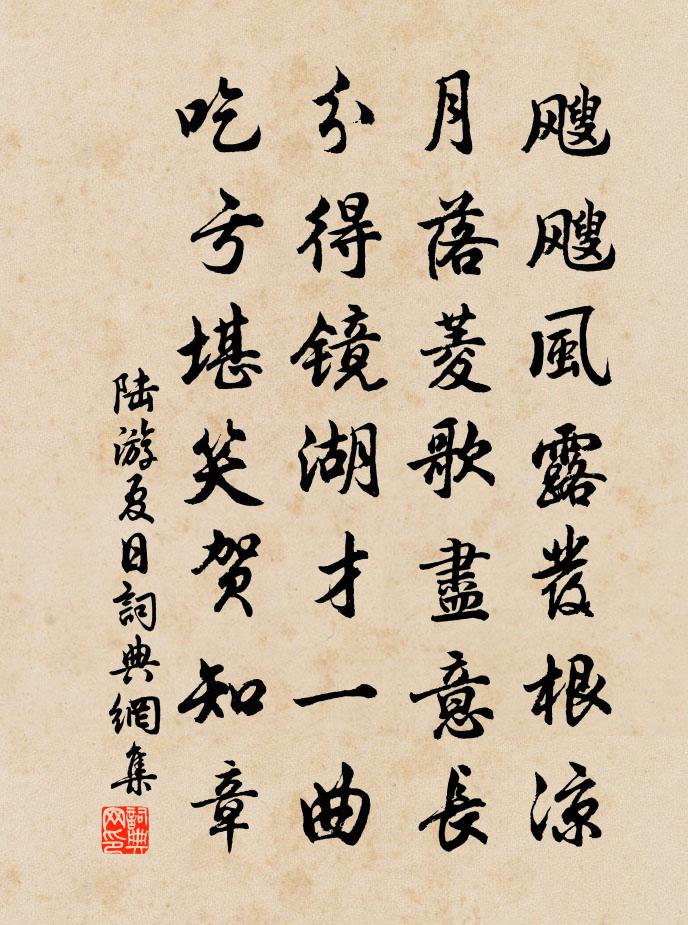 颼颼風露髮根涼
月落菱歌盡意長
分得镜湖才一曲
吃亏堪笑贺知章
陆游夏日詞典網集
詞典网印